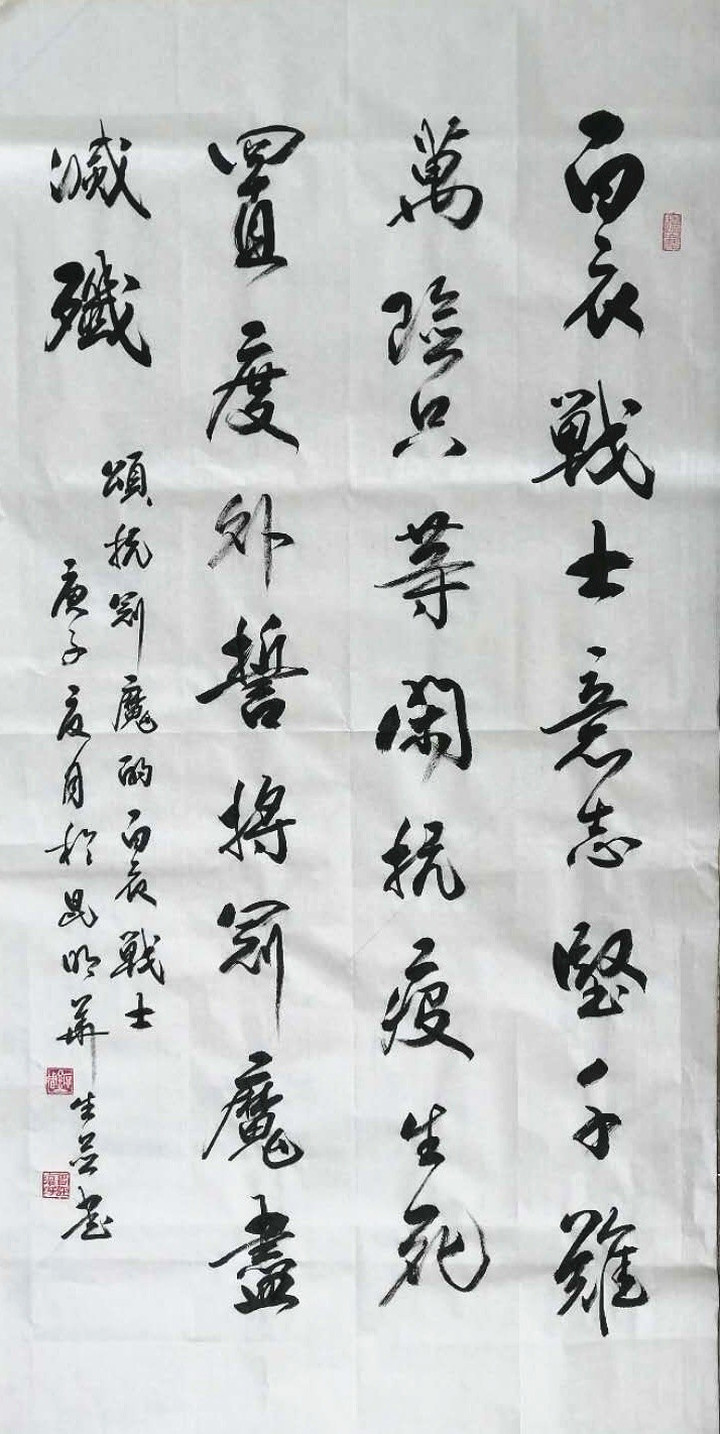 白衣戰士意志堅千難
萬險只等閑抗疫生死
置度外誓將冠魔盡
滅殲
頌抗冠魔的白衣戰士
庚子夏月於昆明華
生並書